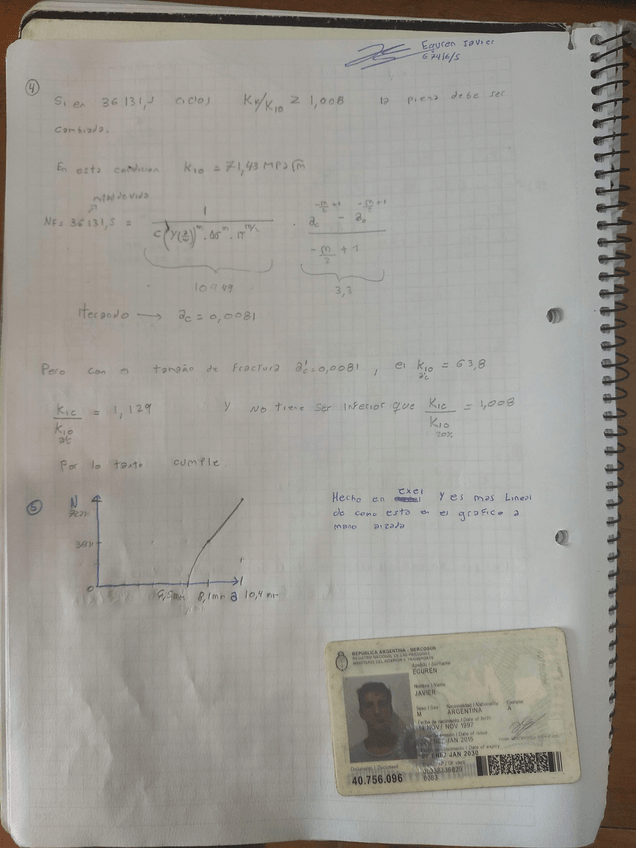 Eguren Javier
62416/5
4
Si en 36 131,5 ciclos K_IC/K_IO ≥ 1,008 la pieza debe ser
cambiada.
En esta condicion K_IO = 71,43 MPa√m
mitad de vida
NF = 36131,5 = 1 / C (Y(a/c))^m . Δσ^m . π^(m/2) . a_c^(-m/2+1) - a_0^(-m/2+1) / -m/2 + 1
10949 3,3
Iterando → a_c = 0,0081
Pero con n tamaño de fractura a'_c = 0,0081 , el K_IO a'c = 63,8
K_IC/K_IO a'c = 1,129 y no tiene ser inferior que K_IC/K_IO 20% = 1,008
Por lo tanto cumple
5
N
36131
0
8,1mm a 10,4 mm
Hecho en exel y es mas lineal
de como esta en el grafico a
mano alzada
REPUBLICA ARGENTINA - MERCOSUR
REGISTRO NACIONAL DE LAS PERSONAS
MINISTERIO DEL INTERIOR Y TRANSPORTE
Apellido / Surname
EGUREN
Nombre / Name
JAVIER
Sexo / Sex Nacionalidad / Nationality Ejemplar
M ARGENTINA A
Fecha de nacimiento / Date of birth
NOV/ NOV 1997
Date of issue
JAN 2015
Date of expiry
JAN 2030
Documento / Document
40.756.096